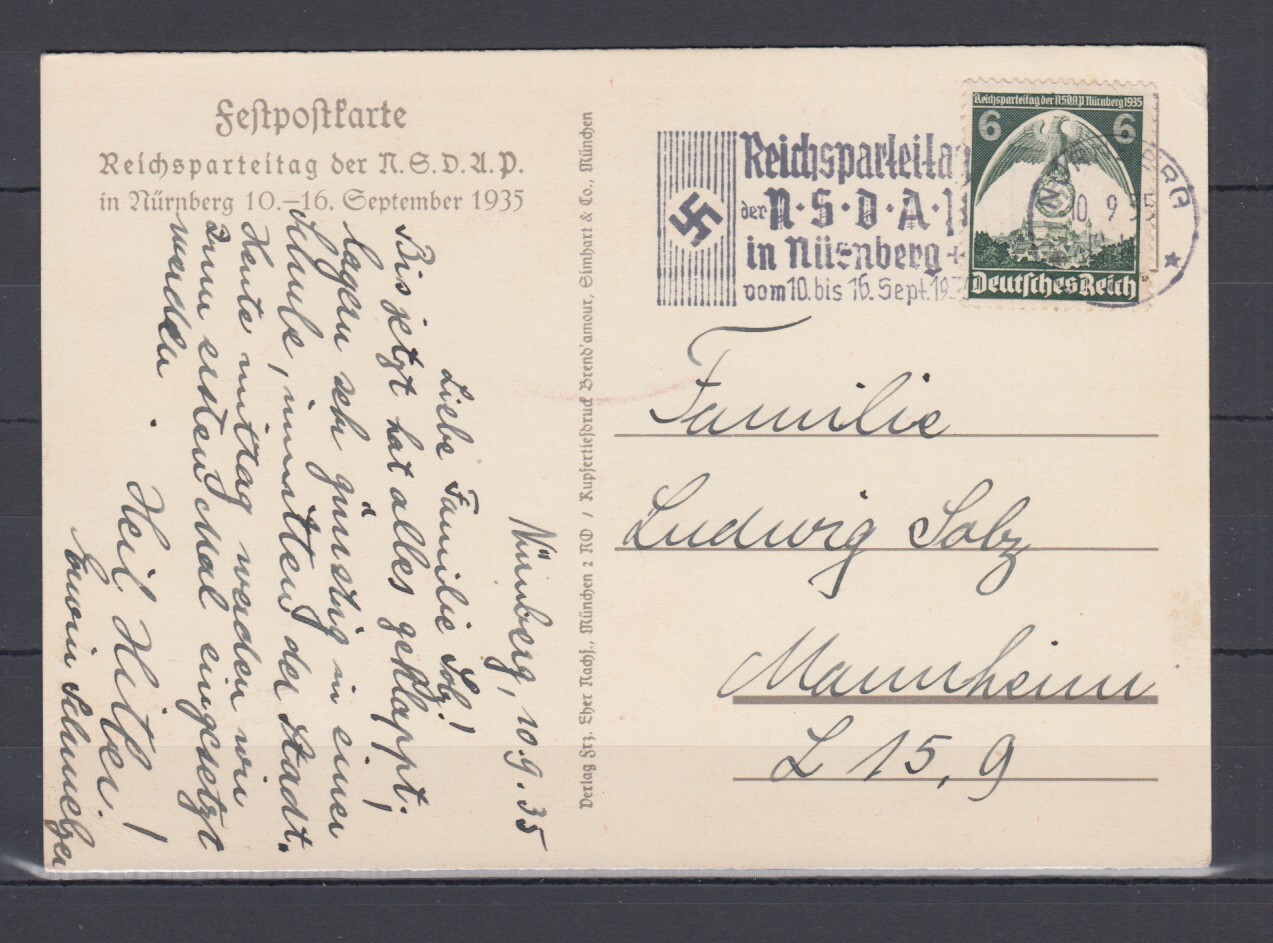 Festpostkarte
Reichsparteitag der N.S.D.A.P.
in Nürnberg 10.–16. September 1935
Nürnberg, 10.9.35
Liebe Familie Solz!
Bis jetzt hat alles geklappt.
lagern sehr günstig in einer
Schule, inmitten der Stadt.
Heute mittag werden wir
zum ersten Mal eingesetzt
werden.
Heil Hitler!
Erwin
Verlag Frz. Eher Nachf., München 2 NO / Kupfertiefdruck Brend'amour, Simhart & Co., München
Reichsparteita
der N·S·D·A·P
in Nürnberg
vom 10. bis 16. Sept. 193
Reichsparteitag der NSDAP Nürnberg 1935
6 6
Deutsches Reich
10. 9 35
Familie
Ludwig Solz
Mannheim
L 15, 9